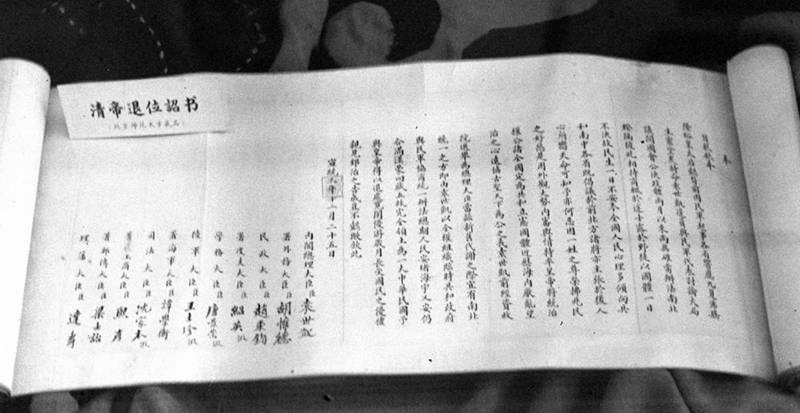 清帝退位詔书
(北京師範大学藏品)
奉
旨朕欽奉
隆裕皇太后懿旨前因民軍起事各省響應九夏沸騰
生靈塗炭特命袁世凱遣員與民軍代表討論大局
議開國會公決政體兩月以來尚無確當辦法南北
暌隔彼此相持商輟於途士露於野徒以國體一日
不決故民生一日不安今全國人民心理多傾向共
和南中各省既倡議於前北方諸將亦主張於後人
心所嚮天命可知予亦何忍因一姓之尊榮拂兆民
之好惡是用外觀大勢內審輿情特率皇帝將統治
權公諸全國定為共和立憲國體近慰海內厭亂望
治之心遠協古聖天下為公之義袁世凱前經資政
院選舉為總理大臣當茲新舊代謝之際宜有南北
統一之方即由袁世凱以全權組織臨時共和政府
與民軍協商統一辦法總期人民安堵海宇乂安仍
合滿漢蒙回藏五族完全領土為一大中華民國予
與皇帝得以退處寬閒優游歲月長受國民之優禮
親見郅治之告成豈不懿歟欽此
宣統三年十二月二十五日
內閣總理大臣臣袁世凱
署外務大臣臣胡惟德
民政大臣臣趙秉鈞
署度支大臣臣紹英假
學務大臣臣唐景崇假
陸軍大臣臣王士珍假
署海軍大臣臣譚學衡
司法大臣臣沈家本假
署農工商大臣臣熙彥
署郵傳大臣臣梁士詒
理藩大臣臣達壽